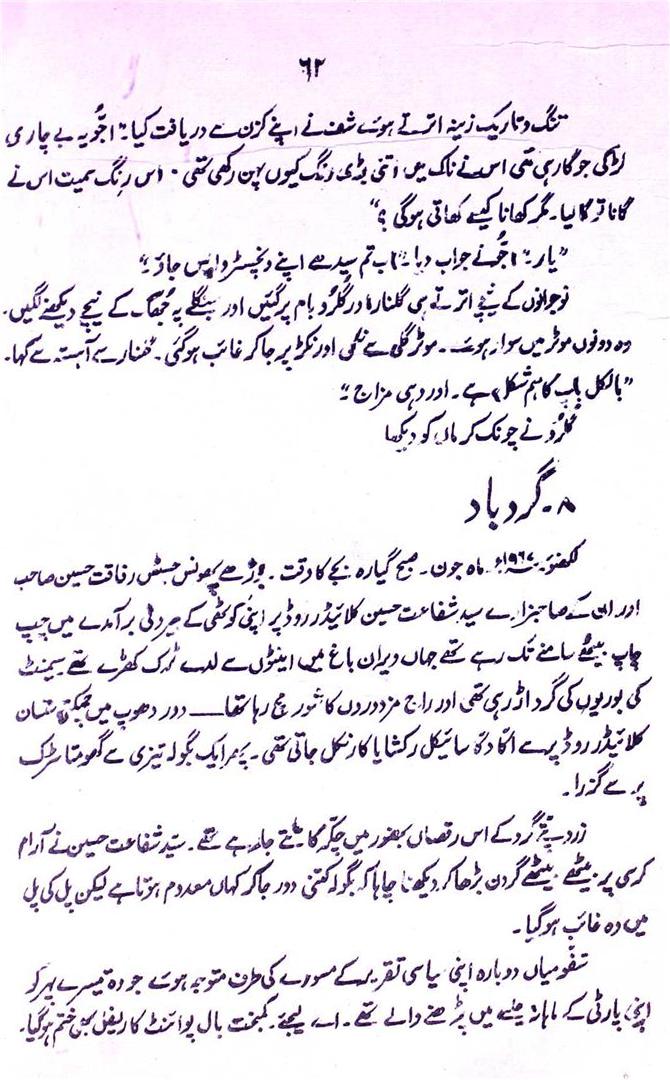 ۶۲
تنگ و تاریک زینہ اترتے ہوئے شفّ نے اپنے کزن سے دریافت کیا۔ "اجّو یہ بے چاری
لڑکی جو گا رہی تھی اس نے ناک میں اتنی بڑی رِنگ کیوں پہن رکھی تھی۔ اس رِنگ سمیت اس نے
گانا تو گا لیا۔ مگر کھانا کیسے کھاتی ہوگی؟"
"یار۔" اجُّو نے جواب دیا۔ "اب تم سیدھے اپنے ونچسٹر واپس جاؤ۔"
نوجوانوں کے نیچے اترتے ہی گلنار اور گلرُو بام پر گئیں اور جنگلے پہ جُھک کے نیچے دیکھنے لگیں۔
وہ دونوں موٹر میں سوار ہوئے۔ موٹر گلی سے نکلی اور نکڑ پر جا کر غائب ہوگئی۔ گلنار نے آہستہ سے کہا۔
"بالکل باپ کا ہم شکل ہے۔ اور وہی مزاج۔"
گلرُو نے چونک کر ماں کو دیکھا
۸۔ گرد باد
لکھنؤ۔ ۱۹۶۷ء ماہ جون۔ صبح گیارہ بجے کا وقت۔ بوڑھے پھونس جسٹس رفاقت حسین صاحب
اور ان کے صاحبزادے سید شفاعت حسین کلائیڈر روڈ پر اپنی کوٹھی کے بیرونی برآمدے میں چپ
چاپ بیٹھے سامنے تک رہے تھے جہاں ویران باغ میں اینٹوں سے لدے ٹرک کھڑے تھے سیمنٹ
کی بوریوں کی گرد اڑ رہی تھی اور راج مزدوروں کا شور مچ رہا تھا ـــــ دور دھوپ میں چمکتی سنسان
کلائیڈر روڈ پر سے اکّا دکّا سائیکل رکشا یا کار نکل جاتی تھی۔ پھر ایک بگولہ تیزی سے گھومتا سڑک
پر سے گزرا۔
زرد پتے گرد کے اس رقصاں بھنور میں چکر کاٹتے جا رہے تھے۔ سیّد شفاعت حسین نے آرام
کرسی پر بیٹھے بیٹھے گردن بڑھا کر دیکھنا چاہا کہ بگولہ کتنی دور جا کر کہاں معدوم ہوتا ہے لیکن پل کی پل
میں وہ غائب ہوگیا۔
شفّو میاں دوبارہ اپنی سیاسی تقریر کے مسودے کی طرف متوجہ ہوئے جو وہ تیسرے پہر کو
اپنی پارٹی کے ماہانہ جلسے میں پڑھنے والے تھے۔ اے لیجئے۔ کمبخت بال پوائنٹ کا ریفل بھی ختم ہوگیا۔